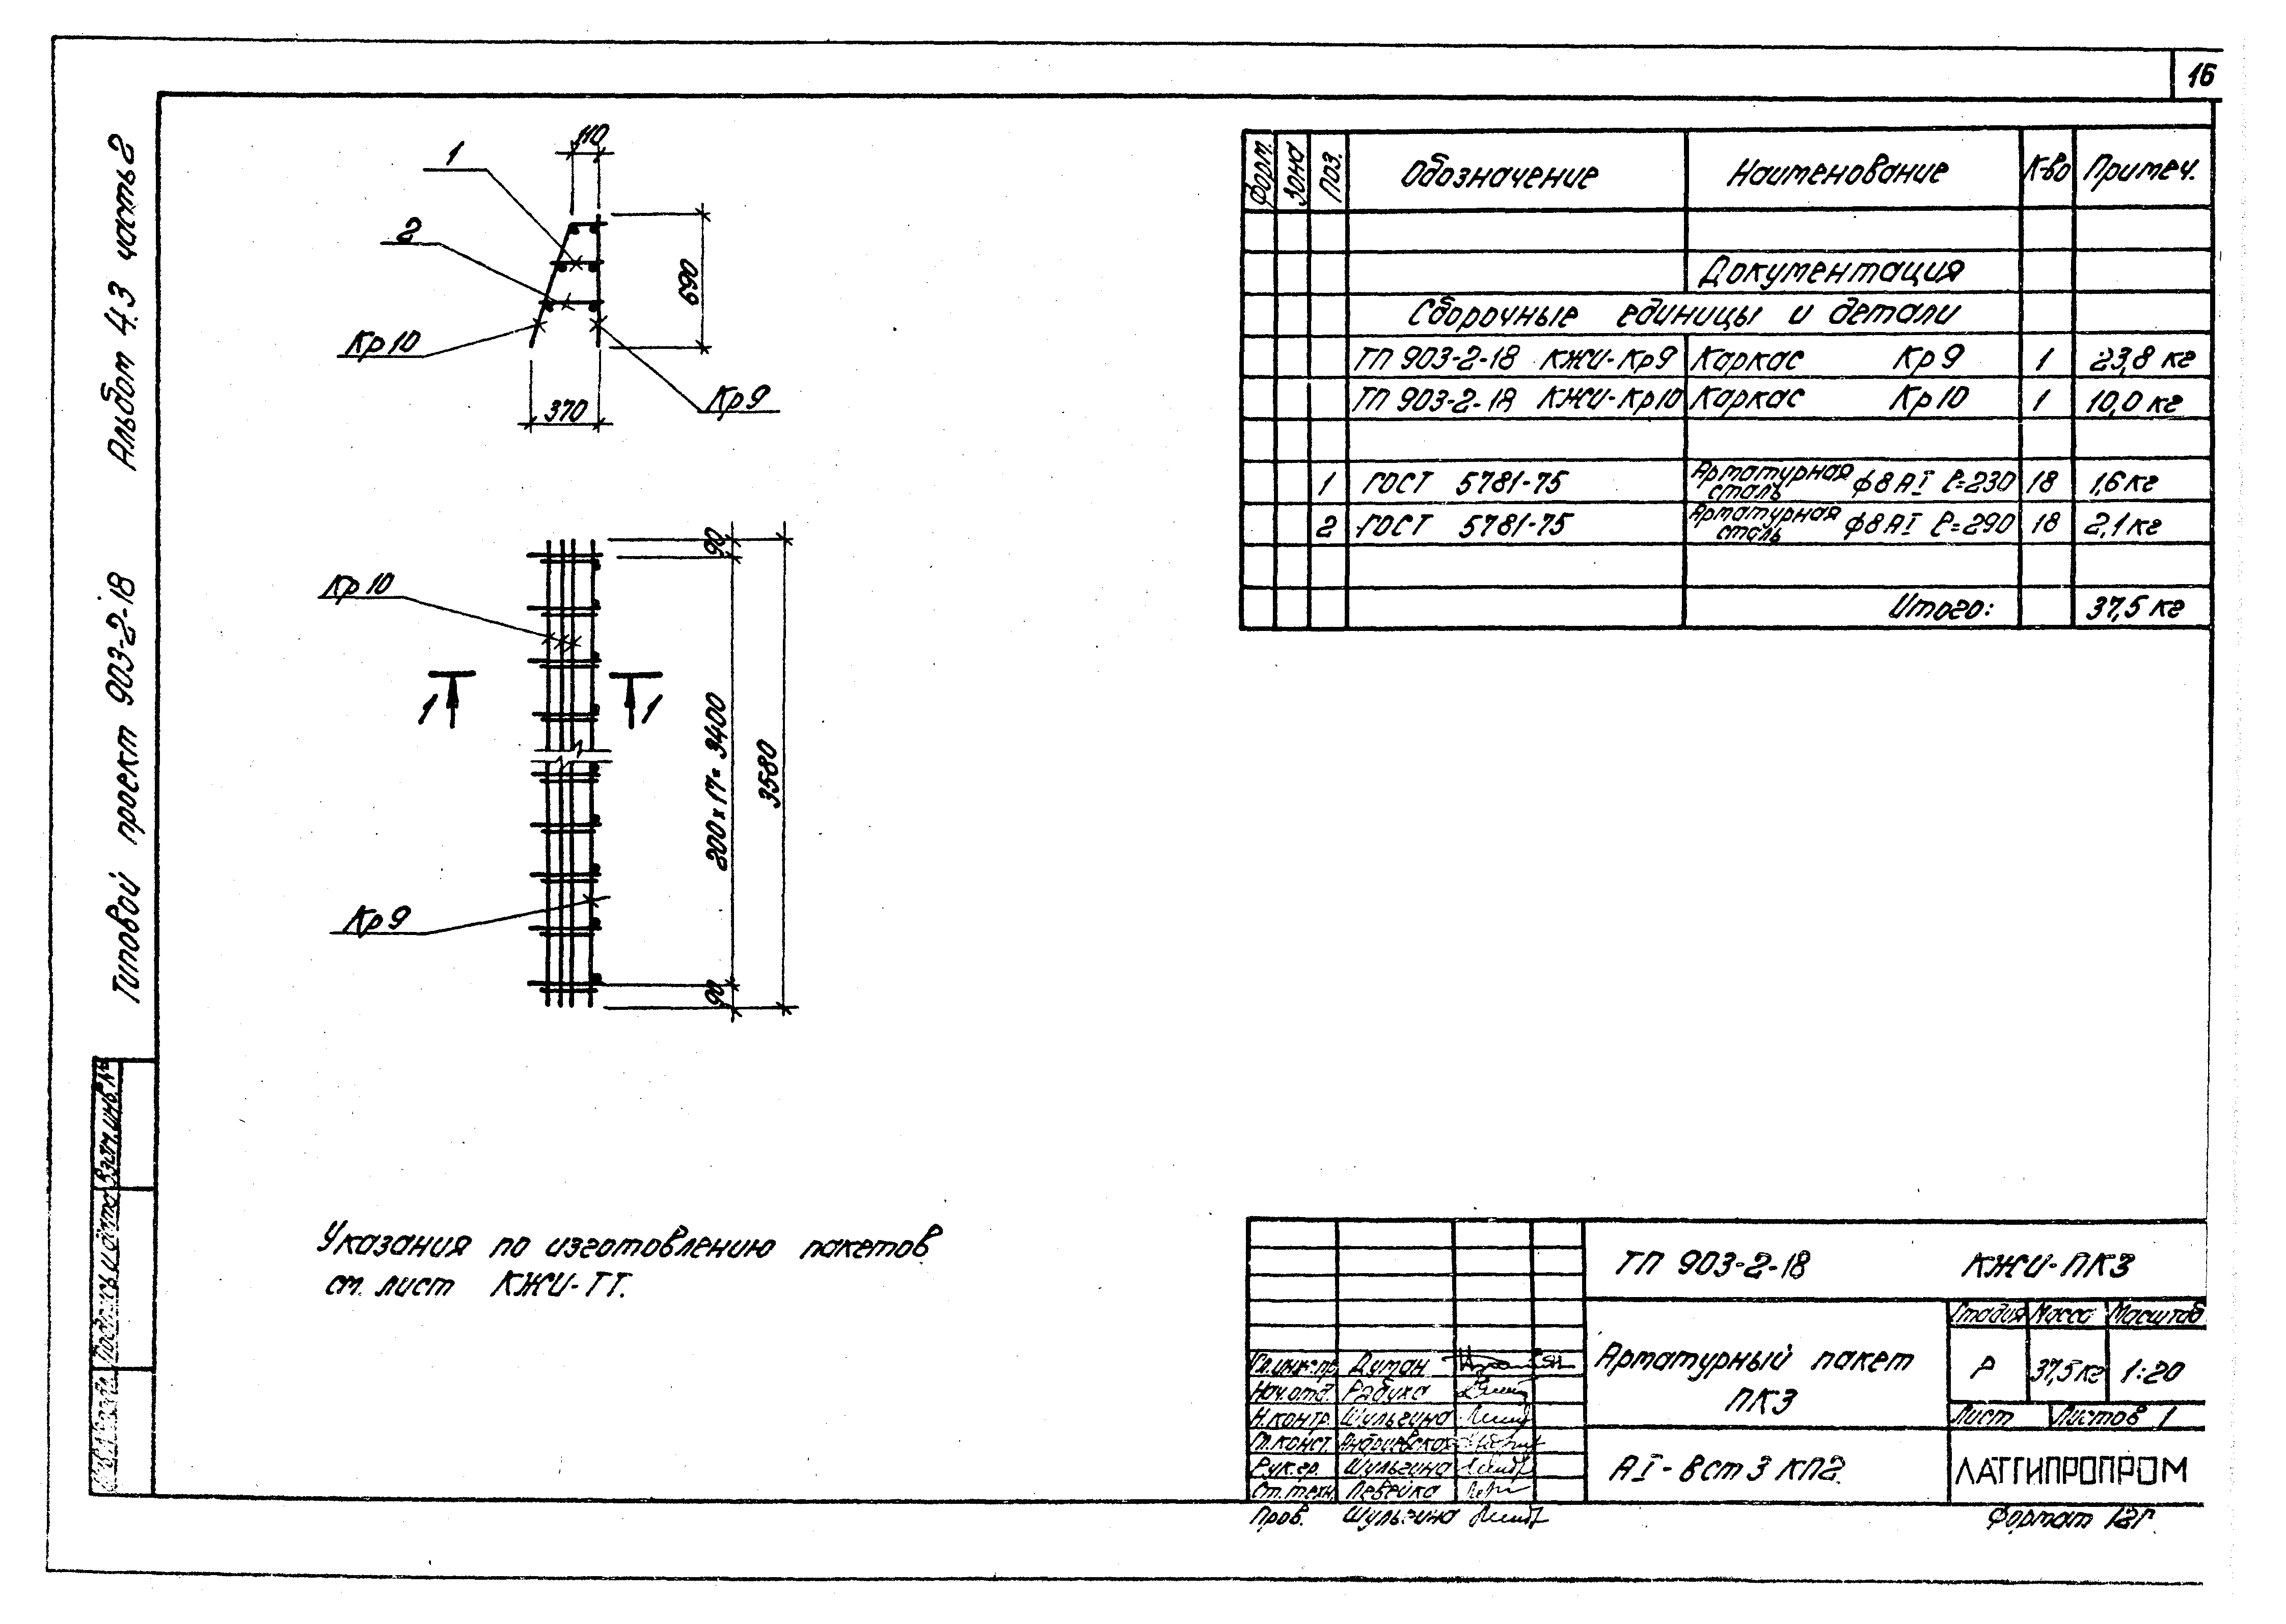 16
Альбом 4.3 часть 2
Типовой проект 903-2-18
Взам.инв.№
Подпись и дата
110
1
2
690
Кр10
Кр9
370
90
Кр10
1 1
200 x 17 = 3400
3580
Кр9
90
Форм. Зона Поз. Обозначение Наименование К-во Примеч.
Документация
Сборочные единицы и детали
ТП 903-2-18 КЖИ-Кр9 Каркас Кр9 1 23,8 кг
ТП 903-2-18 КЖИ-Кр10 Каркас Кр10 1 10,0 кг
1 ГОСТ 5781-75 Арматурная сталь ф8АI ℓ=230 18 1,6 кг
2 ГОСТ 5781-75 Арматурная сталь ф8АI ℓ=290 18 2,1 кг
Итого: 37,5 кг
Указания по изготовлению пакетов
см. лист КЖИ-ТТ.
ТП 903-2-18 КЖИ-ПК3
Стадия Масса Масштаб
Арматурный пакет
ПК3
Р 37,5кг 1:20
Лист Листов 1
АI-в ст 3 кп2.
ЛАТГИПРОПРОМ
Гл.инж.пр. Думан
Нач.отд. Рабуха
Н.контр. Шульгина
Гл.конст. Андриевская
Рук.гр. Шульгина
Ст.техн. Левейка
Пров. Шульгина
Формат 12Г